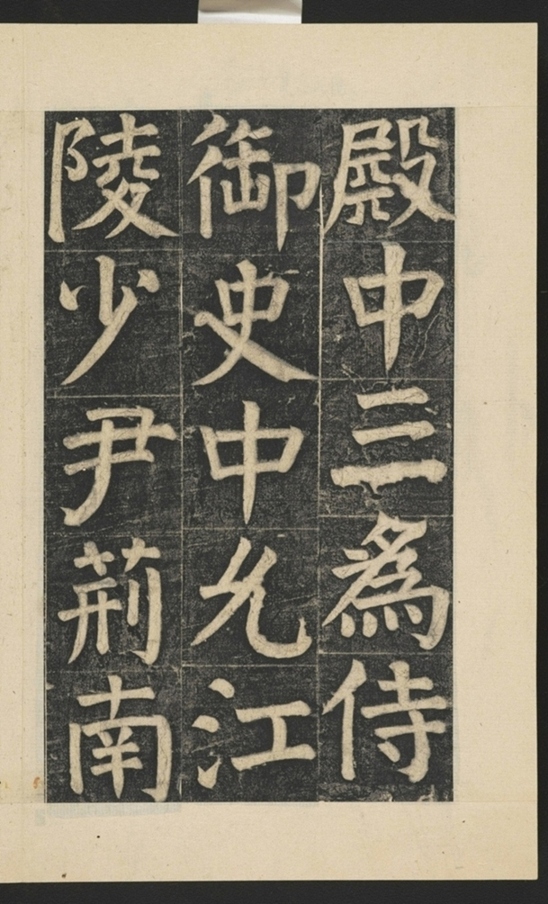 殿中三為侍
御史中允江
陵少尹荊南